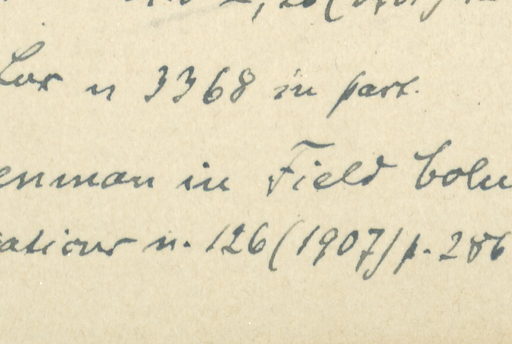 Lor n 3368 in part.
enman in Field Colu
ations n. 126 (1907) p. 286